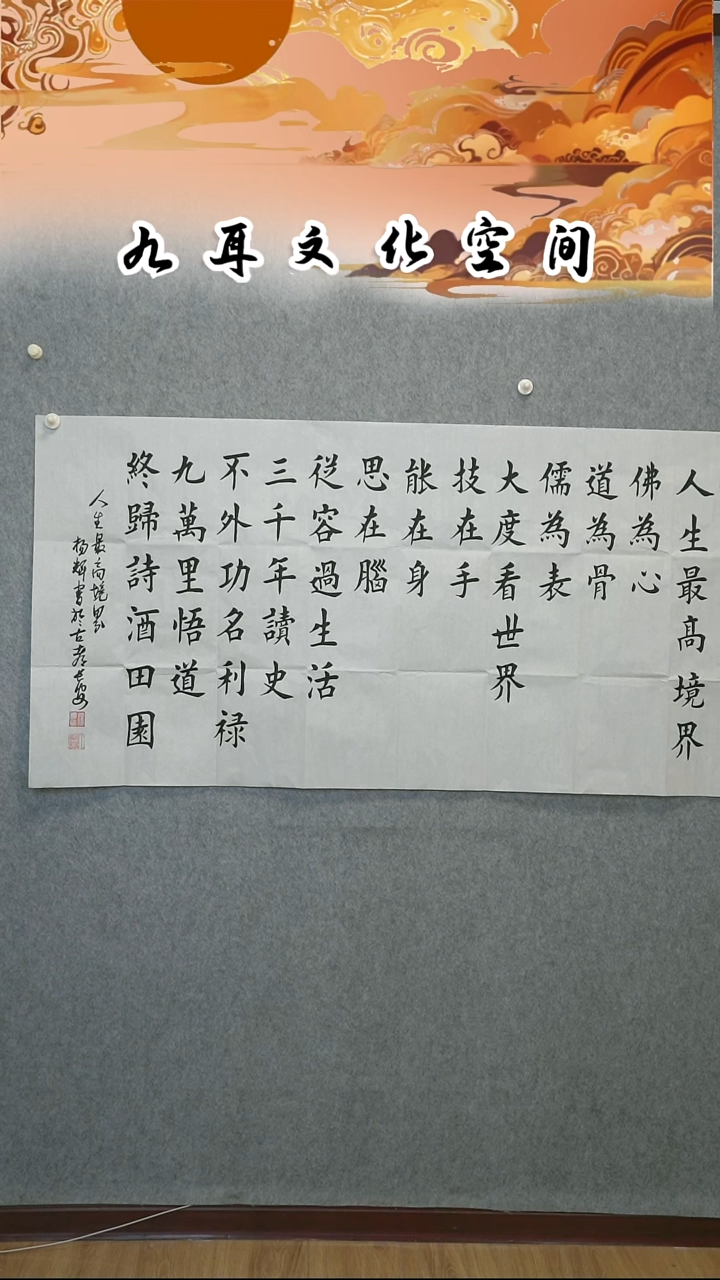 九耳文化空间
人生最高境界
佛為心
道為骨
儒為表
大度看世界
技在手
能在身
思在腦
從容過生活
三千年讀史
不外功名利禄
九萬里悟道
終歸詩酒田園
人生最高境界
杨辉書於古都长安